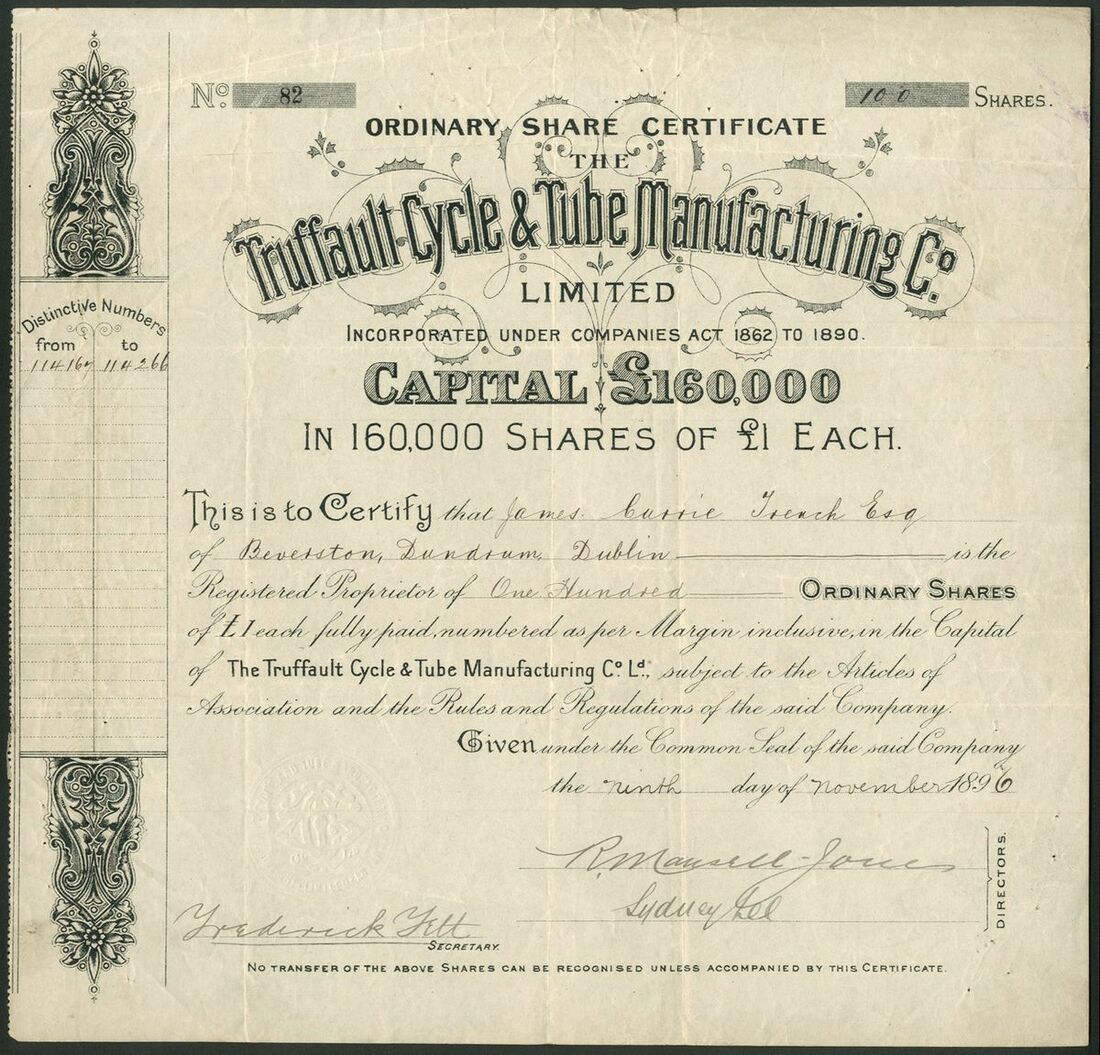 No. 82
100 SHARES.
ORDINARY SHARE CERTIFICATE
THE
Truffault Cycle & Tube Manufacturing Co.
LIMITED
INCORPORATED UNDER COMPANIES ACT 1862 TO 1890.
CAPITAL £160,000
IN 160,000 SHARES OF £1 EACH.
Distinctive Numbers
from to
114167 114266
This is to Certify that James Currie Trench Esq
of Beverston, Dundrum, Dublin is the
Registered Proprietor of One Hundred ORDINARY SHARES
of £1 each fully paid, numbered as per Margin inclusive, in the Capital
of The Truffault Cycle & Tube Manufacturing Co. Ld., subject to the Articles of
Association and the Rules and Regulations of the said Company.
Given under the Common Seal of the said Company
the ninth day of november 1896
R. Mansell-Jones
Sydney Lee
DIRECTORS.
Frederick
SECRETARY.
NO TRANSFER OF THE ABOVE SHARES CAN BE RECOGNISED UNLESS ACCOMPANIED BY THIS CERTIFICATE.